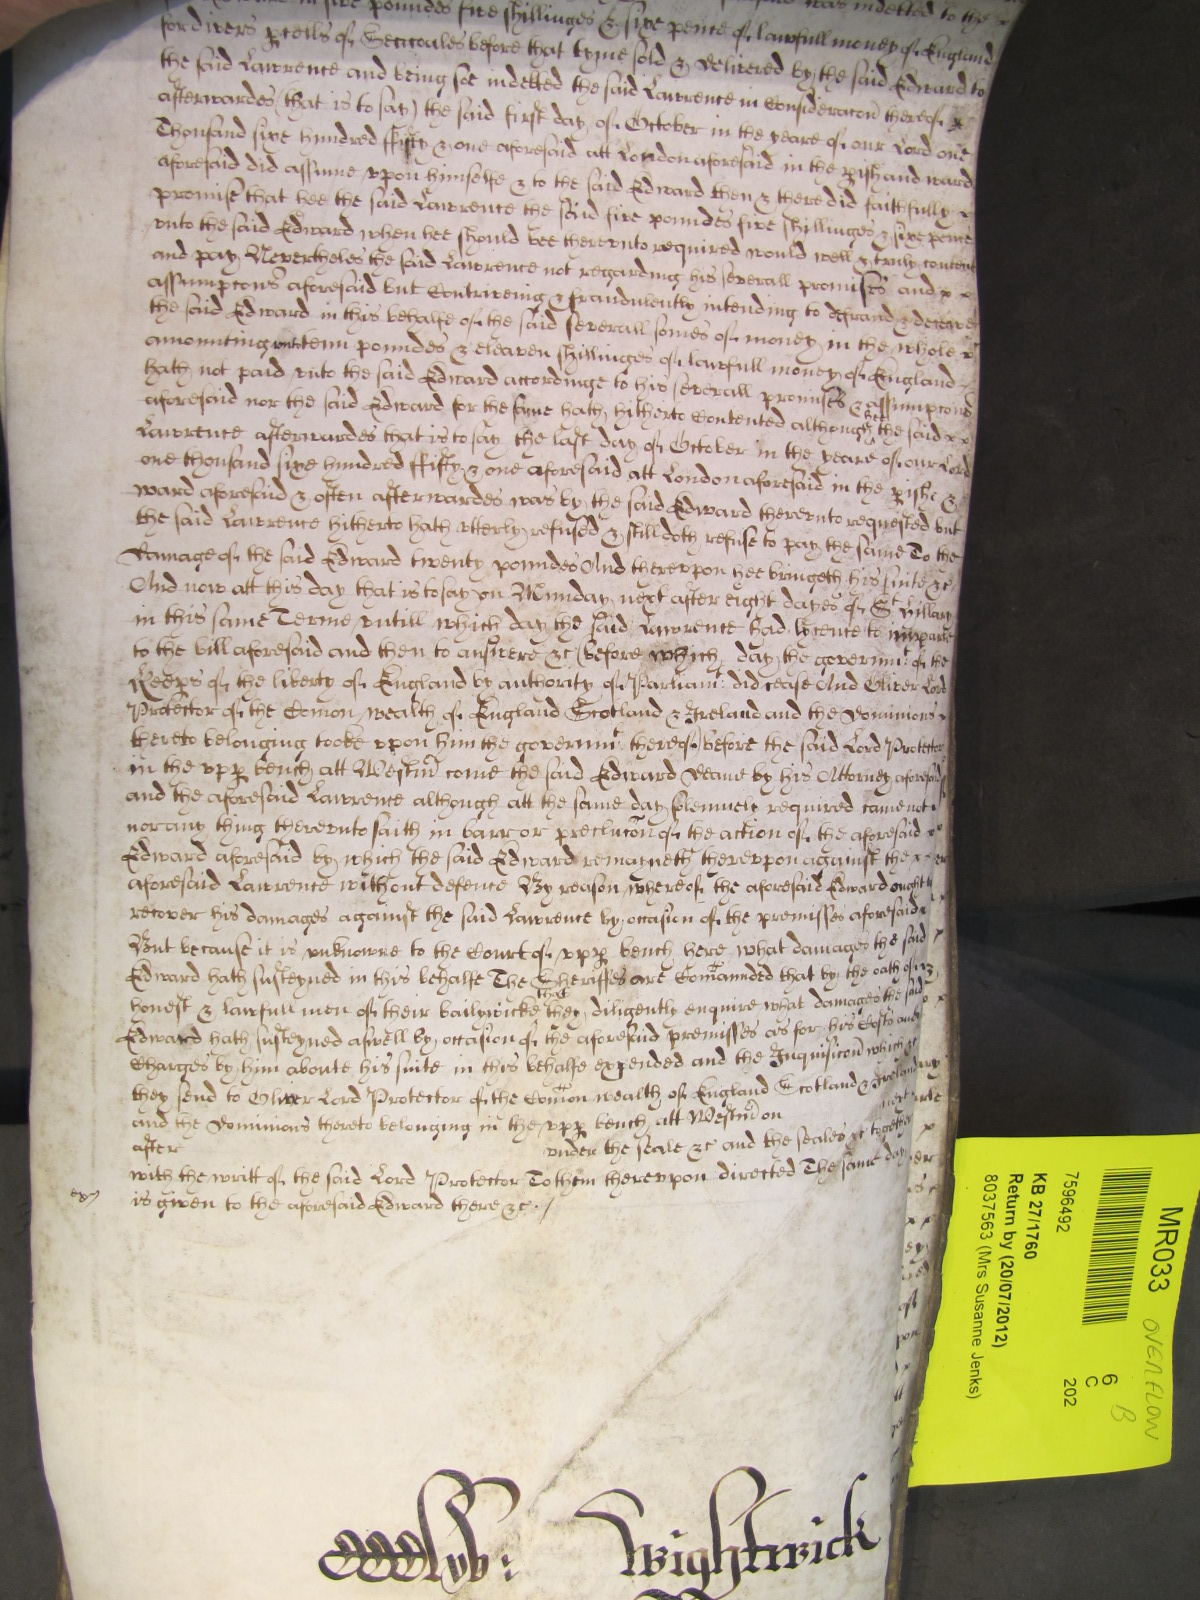 in five poundes five shillinges & sixe pence of lawfull money of England
for divers pcells of Seacoales before that tyme sold & delivered by the said Edward to
the said Lawrence and being soe indebted the said Lawrence in Consideracon thereof x
afterwardes (that is to say) the said first day of October in the yeare of our Lord one
Thousand sixe hundred ffifty & one aforesaid att London aforesaid in the pish and ward
aforesaid did assume vpon himselfe & to the said Edward then & there did faithfully x
promise that hee the said Lawrence the said five poundes five shillinges & sixe pence
vnto the said Edward when hee should bee therevnto required would well & truly content
and pay Nevertheles the said Lawrence not regarding his severall promises and x x
assumpcons aforesaid but Contriveing & fraudulently intending to defraud & deceive
the said Edward in this behalfe of the said severall somes of money in the whole x
amounting tenn poundes & eleaven shillinges of lawfull money of England
hath not paid vnto the said Edward accordinge to his severall promises & assumpcons
aforesaid nor the said Edward for the same hath hitherto Contented although the said x x
Lawrence afterwardes that is to say the last day of October in the yeare of our Lord
one thousand sixe hundred ffifty & one aforesaid att London aforesaid in the pishe &
ward aforesaid & often afterwardes was by the said Edward therevnto requested but
the said Lawrence hitherto hath vtterly refused & still doth refuse to pay the same To the
Damage of the said Edward twenty poundes And therevpon hee bringeth his suite &c
And now att this day that is to say on Munday next after eight dayes of St Hillary
in this same Terme vntill which day the said Lawrence had lycence to imparle
to the bill aforesaid and then to answere &c before which day the governmt of the
Keeps of the liberty of England by authority of Parliamt: did cease And Oliver Lord
Protector of the Comon wealth of England Scotland & Ireland and the Dominions
thereto belonging tooke vpon him the governmt thereof before the said Lord Protector
in the vpp bench att Westm come the said Edward Deane by his Attorney aforesaid
and the aforesaid Lawrence although att the same day solemnely required came not
nor any thing therevnto saith in barr or preclucon of the action of the aforesaid x
Edward aforesaid by which the said Edward remayneth therevpon against the x x
aforesaid Lawrence without defence By reason whereof the aforesaid Edward ought to
recover his damages against the said Lawrence by occasion of the premisses aforesaid
But because it is vnknowne to the Court of vpp bench here what damages the said
Edward hath susteyned in this behalfe The Sheriffes are Comaunded that by the oath of 12
honest & lawfull men of their bailywicke they diligently enquire what damages the said
Edward hath susteyned aswell by occasion of the aforesaid premisses as for his Costs and
Charges by him aboute his suite in this behalfe expended and the Inquisicon which
they send to Oliver Lord Protector of the Comon wealth of England Scotland & Ireland
and the Dominions thereto belonging in the vpp bench att Westm on next
after vnder the seale &c and the seales &c together
with the writt of the said Lord Protector To them therevpon directed The same day
is given to the aforesaid Edward there &c
Wightwick
MR033
OVERFLOW
6
C
202
B
7596492
KB 27/1760
Return by (20/07/2012)
8037563 (Mrs Susanne Jenks)